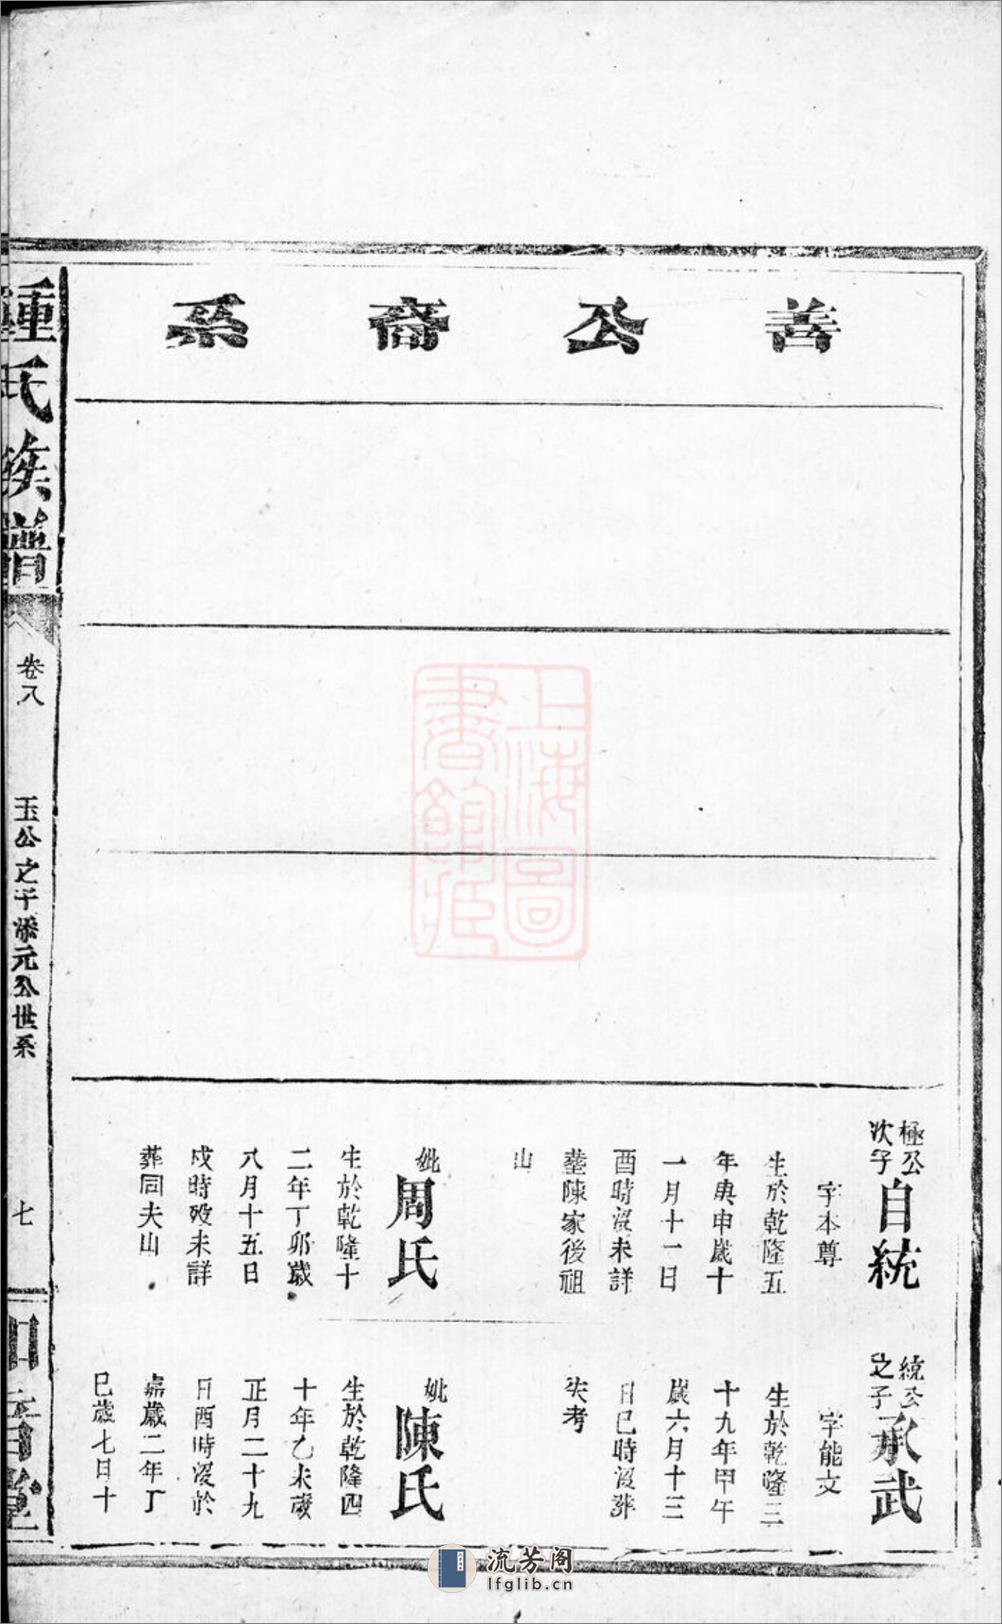 善公裔系
極公
次子
自統
字本尊
生於乾隆五
年庚申歲十
一月十一日
酉時沒未詳
塟陳家後祖
山
妣
周氏
生於乾隆十
二年丁卯歲
八月十五日
戌時歿未詳
葬同夫山
統公
之子
承武
字能文
生於乾隆三
十九年甲午
歲六月十三
日巳時沒葬
失考
妣
陳氏
生於乾隆四
十年乙未歲
正月二十九
日酉時沒於
嘉歲二年丁
巳歲七日十
鍾氏族譜
卷八
玉公之子添元公世系
七
堂
上海圖書館藏
流芳阁
lfglib.cn